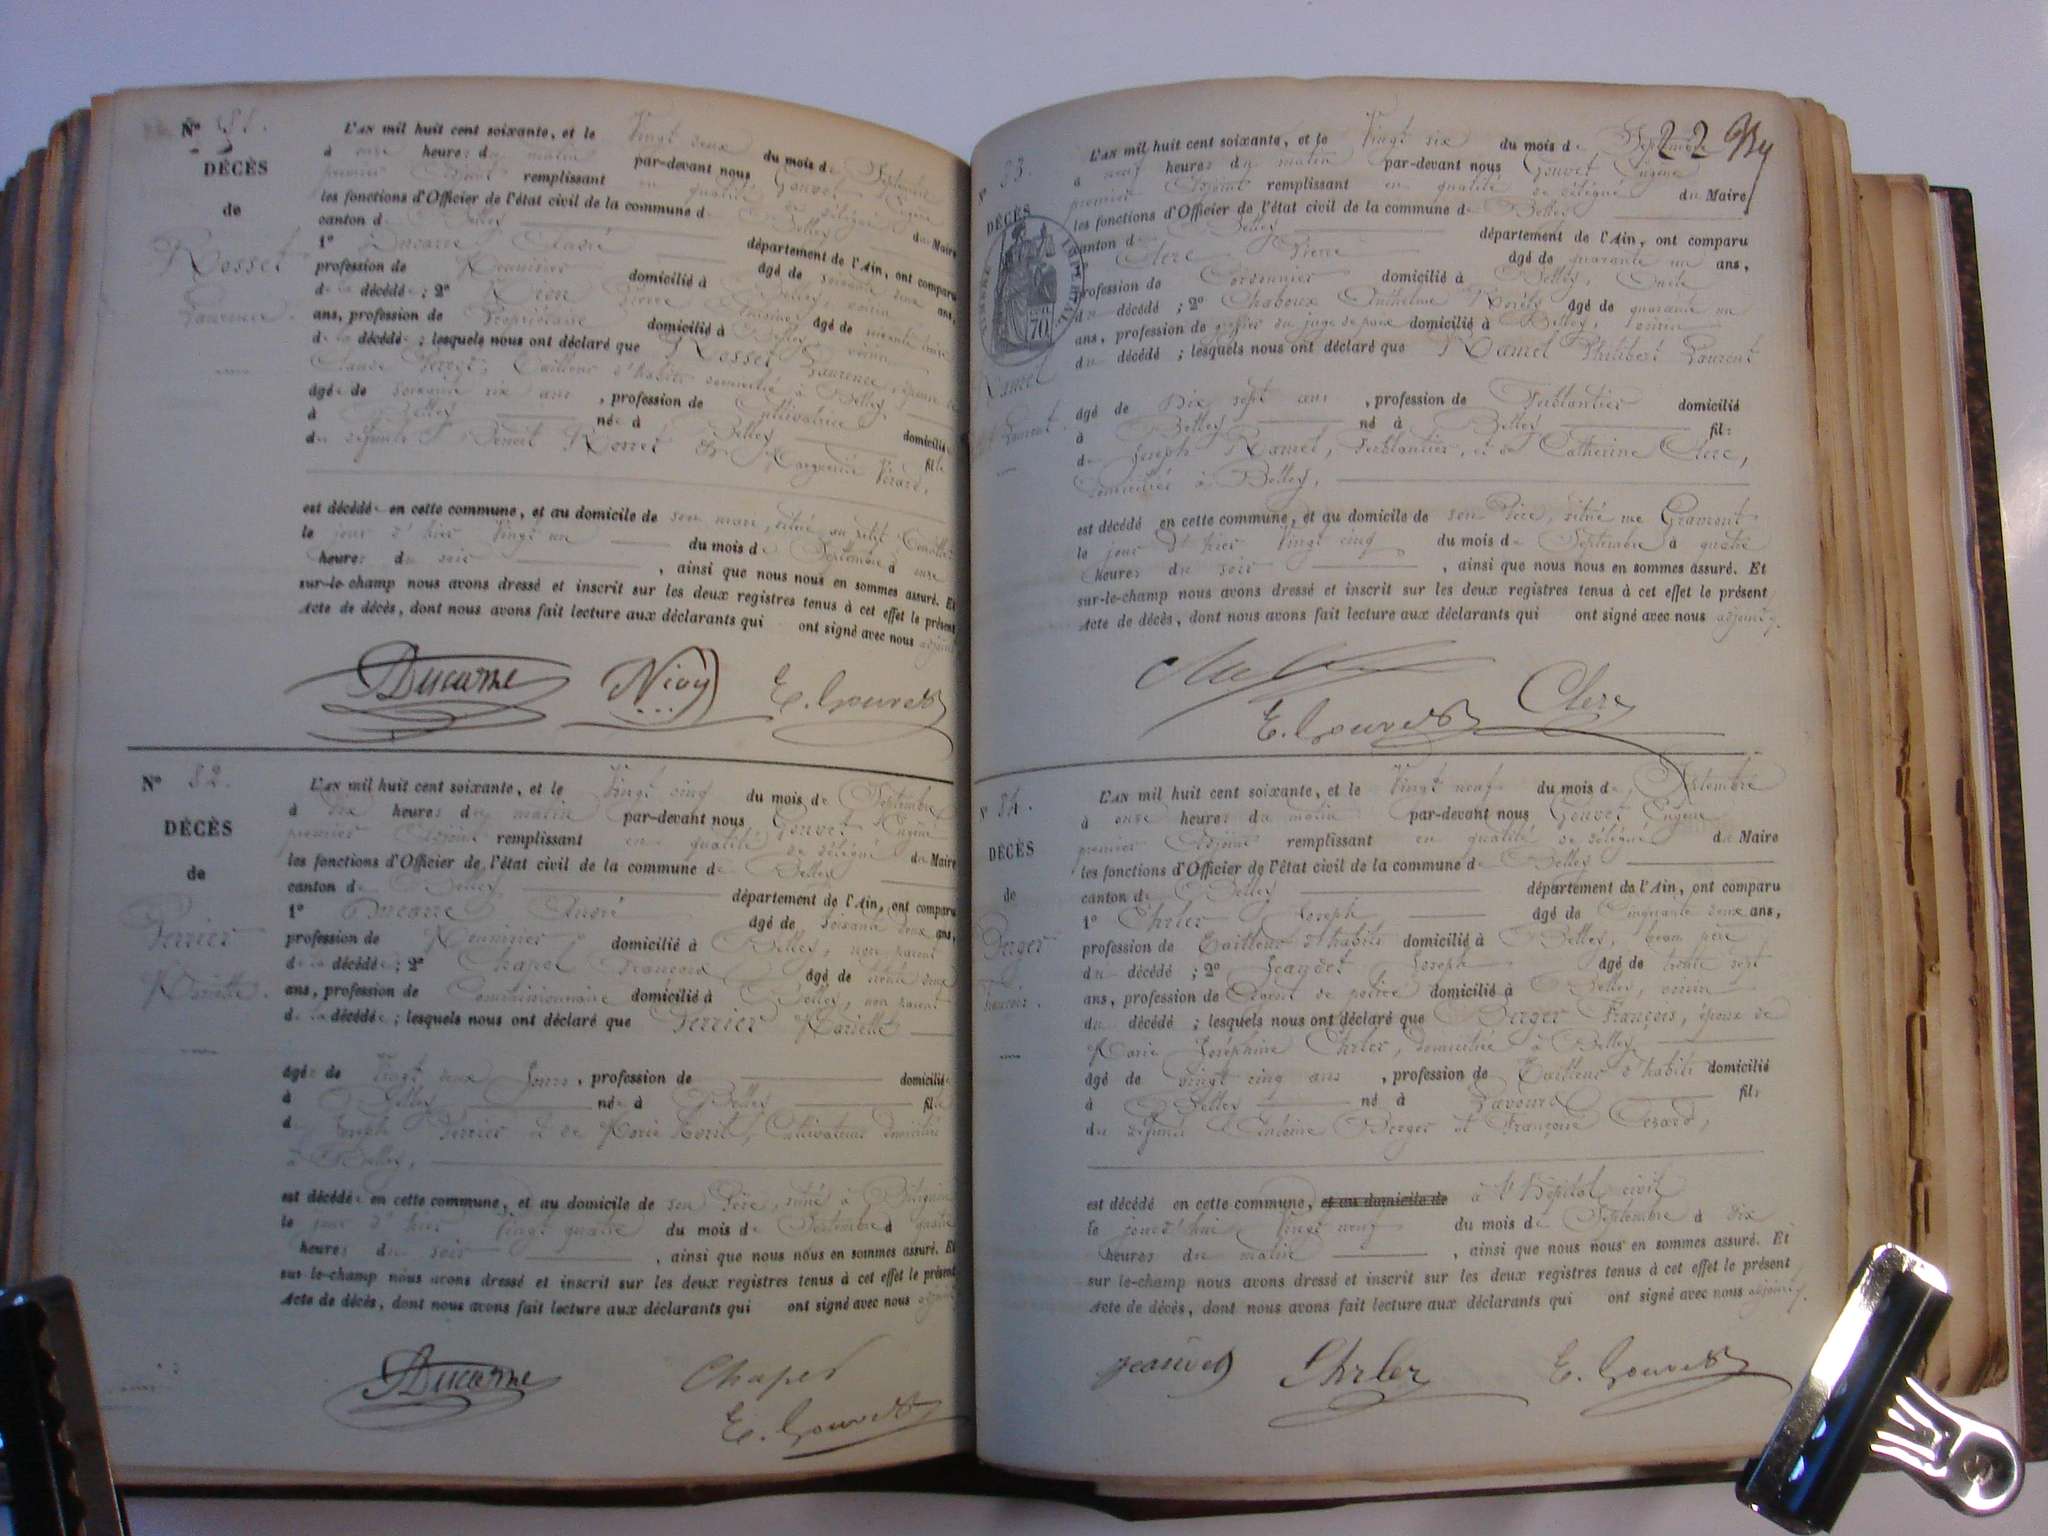 N° 81.
DÉCÈS
de
Rosset
Laurence.
L'AN mil huit cent soixante, et le Vingt deux du mois de Septembre
à onze heures du matin par-devant nous Gouvet Eugène
premier Adjoint remplissant en qualité de délégué du Maire
les fonctions d'Officier de l'état civil de la commune de Belley
canton de Belley département de l'Ain, ont comparu
1° Ducarre âgé de soixante deux ans,
profession de domicilié à Belley, voisin
de la décédée ; 2° Pierre Antoine âgé de
ans, profession de Propriétaire domicilié à Belley, voisin
de la décédée ; lesquels nous ont déclaré que Rosset Laurence, épouse de
Claude Tailleur d'habits domicilié à Belley,
âgée de soixante six ans , profession de Cultivatrice domiciliée
à Belley née à Belley fille
des défunts Benoit Rosset et Marguerite
est décédée en cette commune, et au domicile de son mari, situé au petit
le jour d'hier Vingt un du mois de Septembre à onze
heures du soir , ainsi que nous nous en sommes assuré. Et
sur-le-champ nous avons dressé et inscrit sur les deux registres tenus à cet effet le présent
Acte de décès, dont nous avons fait lecture aux déclarants qui ont signé avec nous adjoint
Ducarre E. Gouvet
N° 82.
DÉCÈS
de
Perrier
Mariette.
L'AN mil huit cent soixante, et le Vingt cinq du mois de Septembre
à dix heures du matin par-devant nous Gouvet Eugène
premier Adjoint remplissant en qualité de délégué du Maire
les fonctions d'Officier de l'état civil de la commune de Belley
canton de Belley département de l'Ain, ont comparu
1° Ducarre André âgé de soixante deux ans,
profession de domicilié à Belley, non parent
de la décédée ; 2° Chapel François âgé de trente deux
ans, profession de Commissionnaire domicilié à Belley, non parent
de la décédée ; lesquels nous ont déclaré que Perrier Mariette
âgée de Vingt deux Jours , profession de domiciliée
à Belley née à Belley fille
de Joseph Perrier et de Marie Cultivateurs domiciliés
à Belley,
est décédée en cette commune, et au domicile de son Père, situé à
le jour d'hier Vingt quatre du mois de Septembre à quatre
heures du soir , ainsi que nous nous en sommes assuré. Et
sur-le-champ nous avons dressé et inscrit sur les deux registres tenus à cet effet le présent
Acte de décès, dont nous avons fait lecture aux déclarants qui ont signé avec nous adjoint
Ducarre Chapel
E. Gouvet
22
N° 83.
DÉCÈS
TIMBRE IMPÉRIAL
70
Ramel
Laurent.
L'AN mil huit cent soixante, et le Vingt six du mois de Septembre
à neuf heures du matin par-devant nous Gouvet Eugène
premier Adjoint remplissant en qualité de délégué du Maire
les fonctions d'Officier de l'état civil de la commune de Belley
canton de Belley département de l'Ain, ont comparu
1° Clerc Pierre âgé de quarante un ans,
profession de Cordonnier domicilié à Belley, Oncle
du décédé ; 2° Chaboux Anthelme âgé de quarante un
ans, profession de greffier du juge de paix domicilié à Belley, voisin
du décédé ; lesquels nous ont déclaré que Ramel Philibert Laurent
âgé de Dix sept ans , profession de Ferblantier domicilié
à Belley né à Belley fils
de Joseph Ramel, Ferblantier, et de Catherine Clerc,
domiciliés à Belley,
est décédé en cette commune, et au domicile de son Père, situé rue Gramont
le jour d'hier Vingt cinq du mois de Septembre à quatre
heures du soir , ainsi que nous nous en sommes assuré. Et
sur-le-champ nous avons dressé et inscrit sur les deux registres tenus à cet effet le présent
Acte de décès, dont nous avons fait lecture aux déclarants qui ont signé avec nous adjoint
E. Gouvet Clerc
N° 84.
DÉCÈS
de
Berger
François.
L'AN mil huit cent soixante, et le Vingt neuf du mois de Septembre
à onze heures du matin par-devant nous Gouvet Eugène
premier Adjoint remplissant en qualité de délégué du Maire
les fonctions d'Officier de l'état civil de la commune de Belley
canton de Belley département de l'Ain, ont comparu
1° Ehrler Joseph âgé de Cinquante deux ans,
profession de Tailleur d'habits domicilié à Belley, beau père
du décédé ; 2° Jeandet Joseph âgé de trente sept
ans, profession de Agent de police domicilié à Belley, voisin
du décédé ; lesquels nous ont déclaré que Berger François, époux de
Marie Joséphine Ehrler, domiciliée à Belley,
âgé de Vingt cinq ans , profession de Tailleur d'habits domicilié
à Belley né à Lavours fils
des défunts Antoine Berger et Françoise
est décédé en cette commune, et au domicile de à l'Hôpital civil
le jourd'hui Vingt neuf du mois de Septembre à dix
heures du matin , ainsi que nous nous en sommes assuré. Et
sur-le-champ nous avons dressé et inscrit sur les deux registres tenus à cet effet le présent
Acte de décès, dont nous avons fait lecture aux déclarants qui ont signé avec nous adjoint.
Jeandet Ehrler E. Gouvet